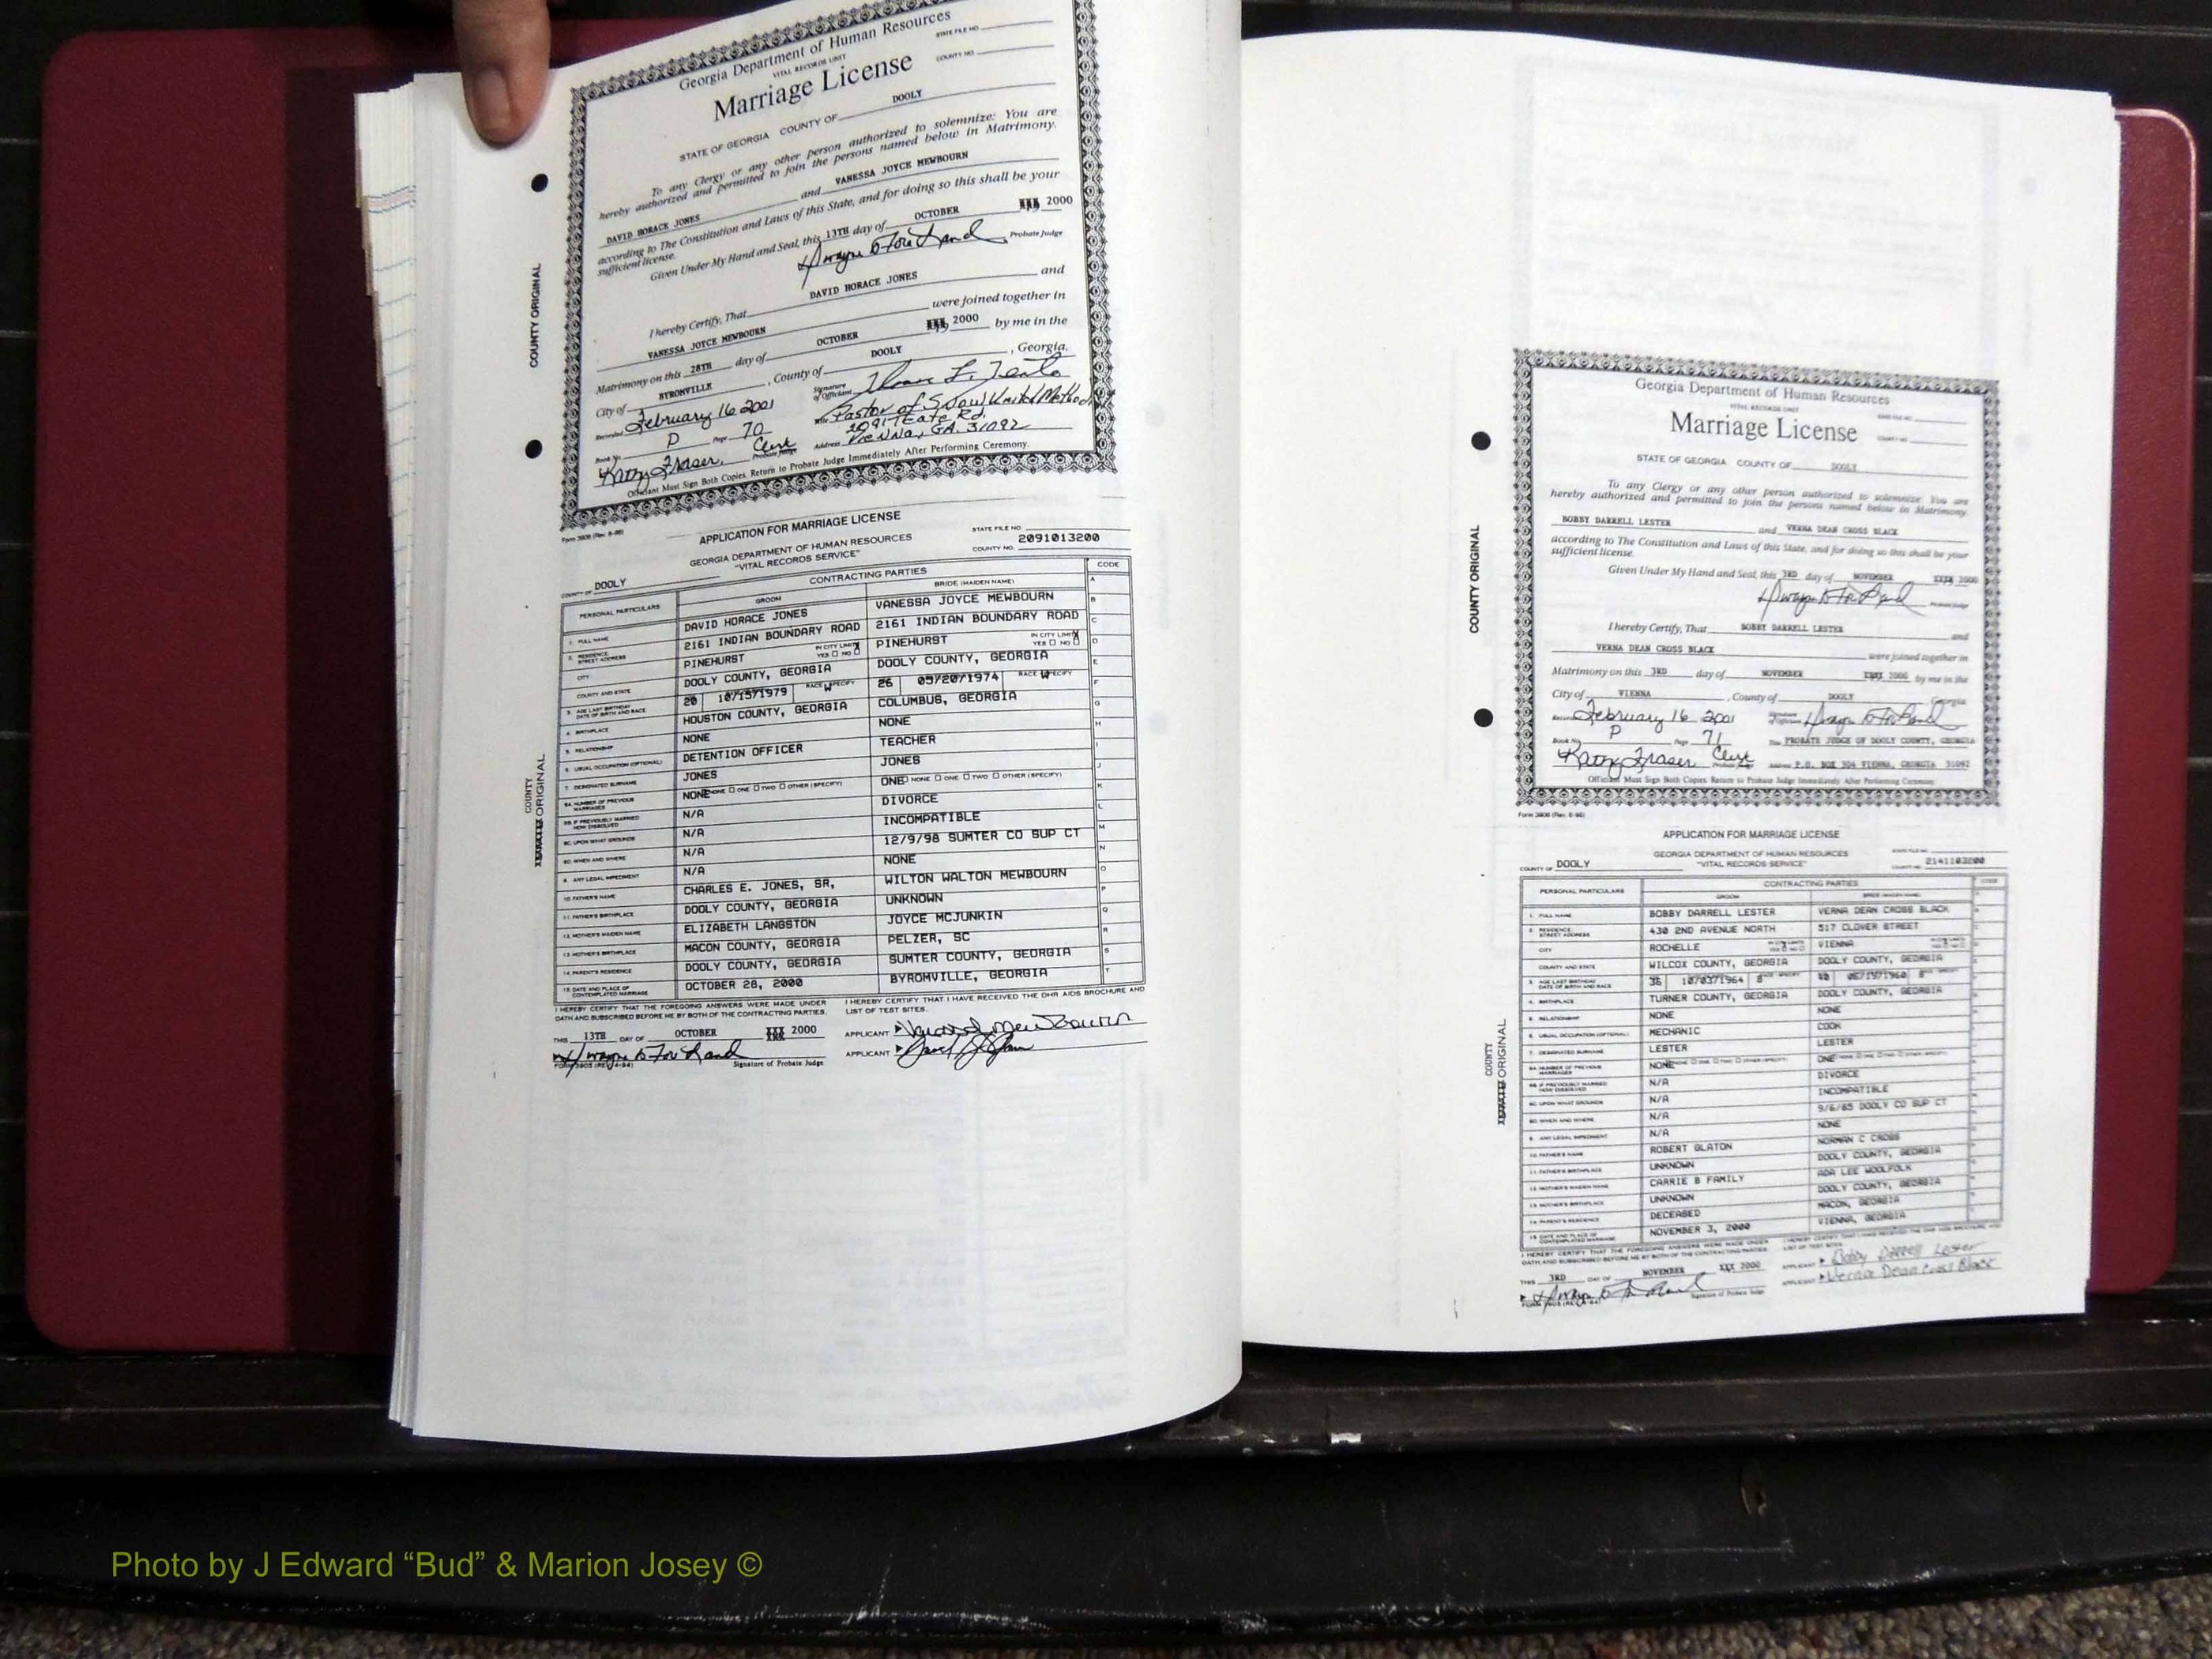 Georgia Department of Human Resources
VITAL RECORDS UNIT
STATE FILE NO.
Marriage License
COUNTY NO.
STATE OF GEORGIA COUNTY OF DOOLY
To any Clergy or any other person authorized to solemnize: You are
hereby authorized and permitted to join the persons named below in Matrimony.
DAVID HORACE JONES and VANESSA JOYCE MEWBOURN
according to The Constitution and Laws of this State, and for doing so this shall be your
sufficient license.
Given Under My Hand and Seal, this 13TH day of OCTOBER 2000
Probate Judge
I hereby Certify, That DAVID HORACE JONES and
VANESSA JOYCE MEWBOURN were joined together in
Matrimony on this 28TH day of OCTOBER 2000 by me in the
City of BYROMVILLE, County of DOOLY, Georgia.
Signature of Officiant
Recorded February 16 2001
Title Pastor of Snow United Method
Book No. P Page 70
Address Vienna, GA. 31092
Kathy Fraser, Clerk Probate Judge
Officiant Must Sign Both Copies. Return to Probate Judge Immediately After Performing Ceremony.
COUNTY ORIGINAL
Form 3906 (Rev. 6-96)
APPLICATION FOR MARRIAGE LICENSE
GEORGIA DEPARTMENT OF HUMAN RESOURCES
"VITAL RECORDS SERVICE"
STATE FILE NO.
COUNTY NO. 2091013200
COUNTY OF DOOLY
CONTRACTING PARTIES CODE
PERSONAL PARTICULARS GROOM BRIDE (MAIDEN NAME)
1. FULL NAME DAVID HORACE JONES VANESSA JOYCE MEWBOURN
2. RESIDENCE STREET ADDRESS 2161 INDIAN BOUNDARY ROAD 2161 INDIAN BOUNDARY ROAD
CITY PINEHURST IN CITY LIMITS YES NO PINEHURST IN CITY LIMITS YES NO
COUNTY AND STATE DOOLY COUNTY, GEORGIA DOOLY COUNTY, GEORGIA
3. AGE LAST BIRTHDAY DATE OF BIRTH AND RACE 20 10/15/1979 RACE SPECIFY W 26 05/20/1974 RACE SPECIFY W
4. BIRTHPLACE HOUSTON COUNTY, GEORGIA COLUMBUS, GEORGIA
5. RELATIONSHIP NONE NONE
6. USUAL OCCUPATION (OPTIONAL) DETENTION OFFICER TEACHER
7. DESIGNATED SURNAME JONES JONES
8A. NUMBER OF PREVIOUS MARRIAGES NONE NONE ONE TWO OTHER (SPECIFY) ONE NONE ONE TWO OTHER (SPECIFY)
8B. IF PREVIOUSLY MARRIED HOW DISSOLVED N/A DIVORCE
8C. UPON WHAT GROUNDS N/A INCOMPATIBLE
8D. WHEN AND WHERE N/A 12/9/98 SUMTER CO SUP CT
9. ANY LEGAL IMPEDIMENT N/A NONE
10. FATHER'S NAME CHARLES E. JONES, SR, WILTON WALTON MEWBOURN
11. FATHER'S BIRTHPLACE DOOLY COUNTY, GEORGIA UNKNOWN
12. MOTHER'S MAIDEN NAME ELIZABETH LANGSTON JOYCE MCJUNKIN
13. MOTHER'S BIRTHPLACE MACON COUNTY, GEORGIA PELZER, SC
14. PARENT'S RESIDENCE DOOLY COUNTY, GEORGIA SUMTER COUNTY, GEORGIA
15. DATE AND PLACE OF CONTEMPLATED MARRIAGE OCTOBER 28, 2000 BYROMVILLE, GEORGIA
I HEREBY CERTIFY THAT THE FOREGOING ANSWERS WERE MADE UNDER
OATH AND SUBSCRIBED BEFORE ME BY BOTH OF THE CONTRACTING PARTIES.
I HEREBY CERTIFY THAT I HAVE RECEIVED THE DHR AIDS BROCHURE AND
LIST OF TEST SITES.
THIS 13TH DAY OF OCTOBER 2000
APPLICANT
APPLICANT
Signature of Probate Judge
FORM 3905 (REV. 4-94)
COUNTY
ORIGINAL
Georgia Department of Human Resources
VITAL RECORDS UNIT
Marriage License
STATE OF GEORGIA COUNTY OF DOOLY
To any Clergy or any other person authorized to solemnize: You are
hereby authorized and permitted to join the persons named below in Matrimony.
BOBBY DARRELL LESTER and VERNA DEAN CROSS BLACK
according to The Constitution and Laws of this State, and for doing so this shall be your
sufficient license.
Given Under My Hand and Seal, this 3RD day of NOVEMBER 2000
Probate Judge
I hereby Certify, That BOBBY DARRELL LESTER and
VERNA DEAN CROSS BLACK were joined together in
Matrimony on this 3RD day of NOVEMBER 2000 by me in the
City of VIENNA, County of DOOLY Georgia.
Recorded February 16 2001
Book No. P Page 71 Title PROBATE JUDGE OF DOOLY COUNTY, GEORGIA
Kathy Fraser Clerk Address P.O. BOX 304 VIENNA, GEORGIA 31092
Officiant Must Sign Both Copies. Return to Probate Judge Immediately After Performing Ceremony.
COUNTY ORIGINAL
Form 3906 (Rev. 6-96)
APPLICATION FOR MARRIAGE LICENSE
GEORGIA DEPARTMENT OF HUMAN RESOURCES
"VITAL RECORDS SERVICE"
COUNTY NO. 2141103200
COUNTY OF DOOLY
CONTRACTING PARTIES CODE
PERSONAL PARTICULARS GROOM BRIDE (MAIDEN NAME)
1. FULL NAME BOBBY DARRELL LESTER VERNA DEAN CROSS BLACK
2. RESIDENCE STREET ADDRESS 430 2ND AVENUE NORTH 517 CLOVER STREET
CITY ROCHELLE VIENNA
COUNTY AND STATE WILCOX COUNTY, GEORGIA DOOLY COUNTY, GEORGIA
3. AGE LAST BIRTHDAY DATE OF BIRTH AND RACE 36 10/03/1964 B 40 1960 B
4. BIRTHPLACE TURNER COUNTY, GEORGIA DOOLY COUNTY, GEORGIA
5. RELATIONSHIP NONE NONE
6. USUAL OCCUPATION (OPTIONAL) MECHANIC COOK
7. DESIGNATED SURNAME LESTER LESTER
8A. NUMBER OF PREVIOUS MARRIAGES NONE ONE
8B. IF PREVIOUSLY MARRIED HOW DISSOLVED N/A DIVORCE
8C. UPON WHAT GROUNDS N/A INCOMPATIBLE
8D. WHEN AND WHERE N/A 9/6/85 DOOLY CO SUP CT
9. ANY LEGAL IMPEDIMENT N/A NONE
10. FATHER'S NAME ROBERT GLATON NORMAN C CROSS
11. FATHER'S BIRTHPLACE UNKNOWN DOOLY COUNTY, GEORGIA
12. MOTHER'S MAIDEN NAME CARRIE B FAMILY ADA LEE WOOLFOLK
13. MOTHER'S BIRTHPLACE UNKNOWN DOOLY COUNTY, GEORGIA
14. PARENT'S RESIDENCE DECEASED MACON, GEORGIA
15. DATE AND PLACE OF CONTEMPLATED MARRIAGE NOVEMBER 3, 2000 VIENNA, GEORGIA
I HEREBY CERTIFY THAT THE FOREGOING ANSWERS WERE MADE UNDER
OATH AND SUBSCRIBED BEFORE ME BY BOTH OF THE CONTRACTING PARTIES.
THIS 3RD DAY OF NOVEMBER 2000
APPLICANT Bobby Darrell Lester
APPLICANT Verna Dean Cross Black
Signature of Probate Judge
COUNTY
ORIGINAL
Photo by J Edward “Bud” & Marion Josey ©